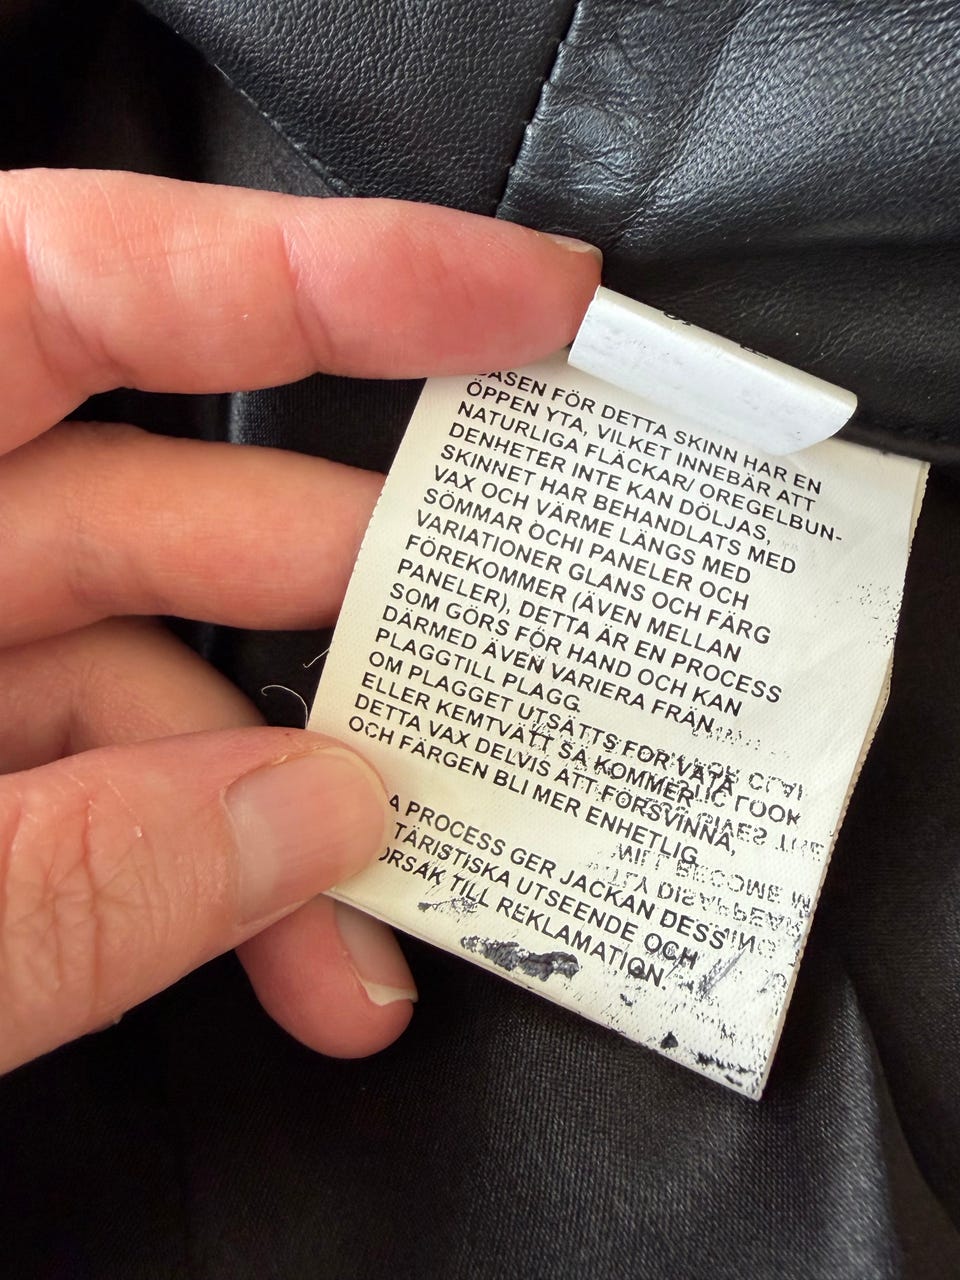 BASEN FÖR DETTA SKINN HAR EN
ÖPPEN YTA, VILKET INNEBÄR ATT
NATURLIGA FLÄCKAR/ OREGELBUN-
DENHETER INTE KAN DÖLJAS,
SKINNET HAR BEHANDLATS MED
VAX OCH VÄRME LÄNGS MED
SÖMMAR OCHI PANELER OCH
VARIATIONER GLANS OCH FÄRG
FÖREKOMMER (ÄVEN MELLAN
PANELER), DETTA ÄR EN PROCESS
SOM GÖRS FÖR HAND OCH KAN
DÄRMED ÄVEN VARIERA FRÅN
PLAGGTILL PLAGG.
OM PLAGGET UTSÄTTS FOR VÄTA
ELLER KEMTVÄTT SÅ KOMMER
DETTA VAX DELVIS ATT FÖRSVINNA,
OCH FÄRGEN BLI MER ENHETLIG.
PROCESS GER JACKAN DESS
UTSEENDE OCH
TILL REKLAMATION.